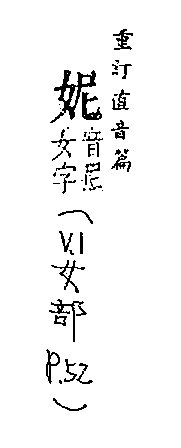 重訂直音篇
妮
音尼
女字
(V.1女部P.52)